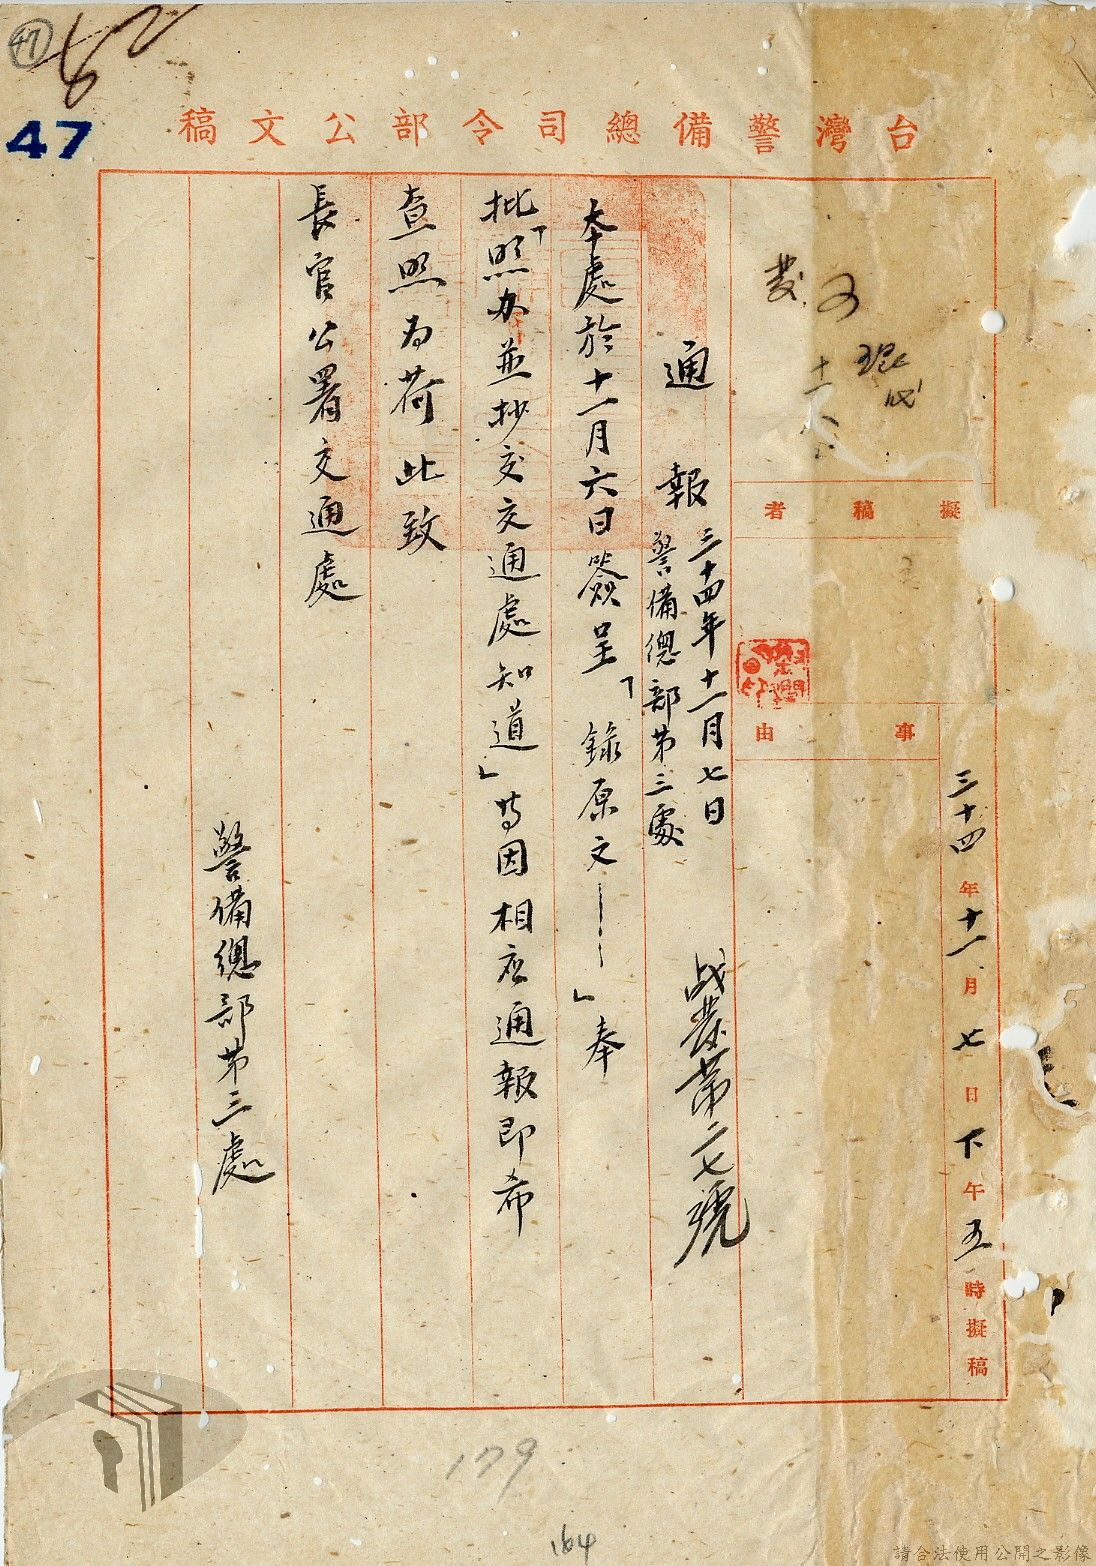 47
47
台灣警備總司令部公文稿
發
擬稿者
事由
三十四年十一月七日下午五時擬稿
通報 三十四年十一月七日
警備總部第三處
戰叢第二七號
本處於十一月六日簽呈「錄原文——」奉
批「照办並抄交交通處知道」等因相应通報即希
查照為荷此致
長官公署交通處
警備總部第三處
179
164
請合法使用公開之影像